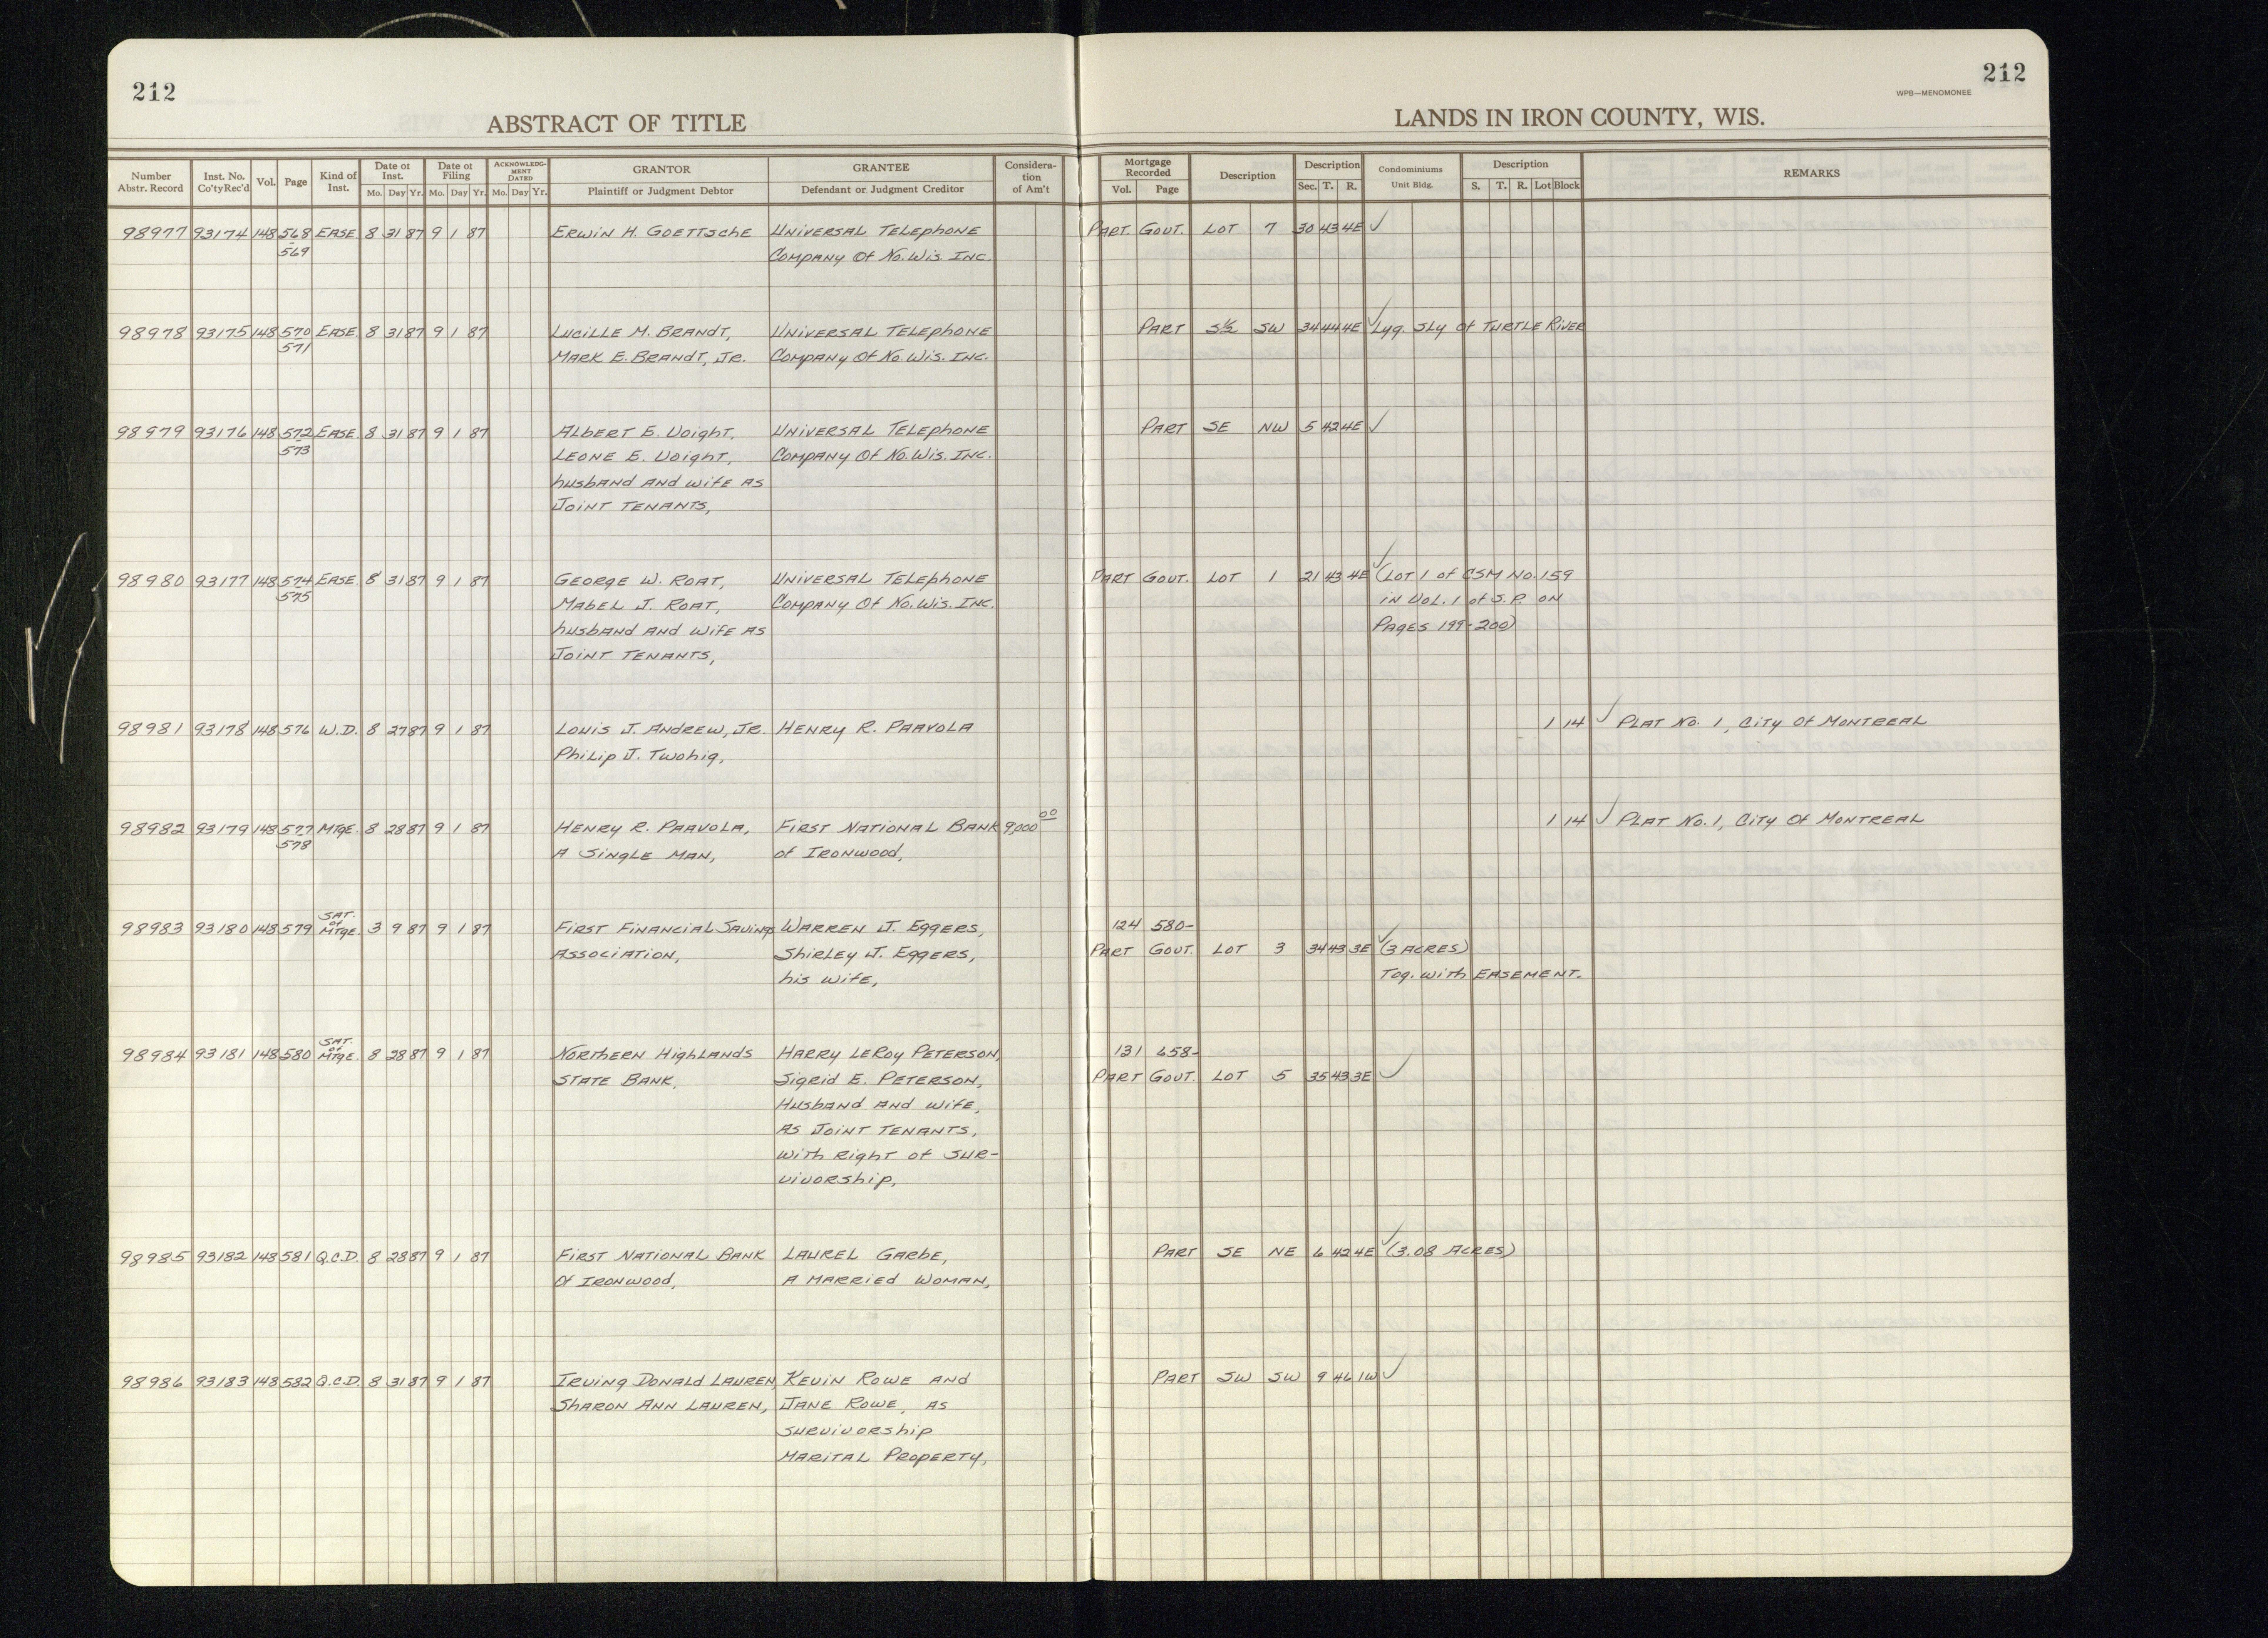 212
212
WPB—MENOMONEE
ABSTRACT OF TITLE
LANDS IN IRON COUNTY, WIS.
Number Abstr. Record Inst. No. Co'ty Rec'd Vol. Page Kind of Inst. Date of Inst. Mo. Day Yr. Date of Filing Mo. Day Yr. ACKNOWLEDGMENT DATED Mo. Day Yr. GRANTOR Plaintiff or Judgment Debtor GRANTEE Defendant or Judgment Creditor Consideration of Am't Mortgage Recorded Vol. Page Description Description Sec. T. R. Condominiums Unit Bldg. Description S. T. R. Lot Block REMARKS
98977 93174 148 568 EASE 8 31 87 9 1 87 ERWIN H. GOETTSCHE UNIVERSAL TELEPHONE PART. GOVT. LOT 7 30 43 4E ✓
569 COMPANY Of No. Wis. INC.
98978 93175 148 570 EASE. 8 31 87 9 1 87 LUCILLE M. BRANDT, UNIVERSAL TELEPHONE PART S½ SW 34 44 4E ✓ Lyg. Sly of TURTLE RIVER
571 MARK E. BRANDT, JR. COMPANY Of No. Wis. INC.
98979 93176 148 572 EASE. 8 31 87 9 1 87 ALBERT E. VOIGHT, UNIVERSAL TELEPHONE PART SE NW 5 42 4E ✓
573 LEONE E. VOIGHT, COMPANY Of No. Wis. INC.
husband AND wife AS
JOINT TENANTS,
98980 93177 148 574 EASE. 8 31 87 9 1 87 GEORGE W. ROAT, UNIVERSAL TELEPHONE PART GOVT. LOT 1 21 43 4E ✓ (LOT 1 of CSM No. 159
575 MABEL J. ROAT, COMPANY Of No. Wis. INC. IN VOL. 1 of S.P. ON
husband AND wife AS PAGES 199-200)
JOINT TENANTS,
98981 93178 148 576 W.D. 8 27 87 9 1 87 LOUIS J. ANDREW, JR. HENRY R. PAAVOLA 1 14 ✓ PLAT No. 1, CITY Of MONTREAL
PHILIP J. TWOHIG,
98982 93179 148 577 MTGE. 8 28 87 9 1 87 HENRY R. PAAVOLA, FIRST NATIONAL BANK 9,000 00 1 14 ✓ PLAT No. 1, CITY Of MONTREAL
578 A SINGLE MAN, of IRONWOOD,
98983 93180 148 579 SAT. of MTGE. 3 9 87 9 1 87 FIRST FINANCIAL SAVINGS WARREN J. EGGERS, 124 580-
ASSOCIATION, SHIRLEY J. EGGERS, PART GOVT. LOT 3 34 43 3E ✓ (3 ACRES)
his wife, Tog. with EASEMENT.
98984 93181 148 580 SAT. of MTGE. 8 28 87 9 1 87 NORTHERN HIGHLANDS HARRY LEROY PETERSON, 131 658-
STATE BANK, SIGRID E. PETERSON, PART GOVT. LOT 5 35 43 3E ✓
HUSBAND AND wife,
AS JOINT TENANTS,
with Right of SUR-
VIVORSHIP,
98985 93182 148 581 Q.C.D. 8 28 87 9 1 87 FIRST NATIONAL BANK LAUREL GARBE, PART SE NE 6 42 4E ✓ (3.08 ACRES)
Of IRONWOOD, A MARRIED WOMAN,
98986 93183 148 582 Q.C.D. 8 31 87 9 1 87 IRVING DONALD LAUREN, KEVIN ROWE AND PART SW SW 9 46 1W ✓
SHARON ANN LAUREN, JANE ROWE, AS
SURVIVORSHIP
MARITAL PROPERTY,